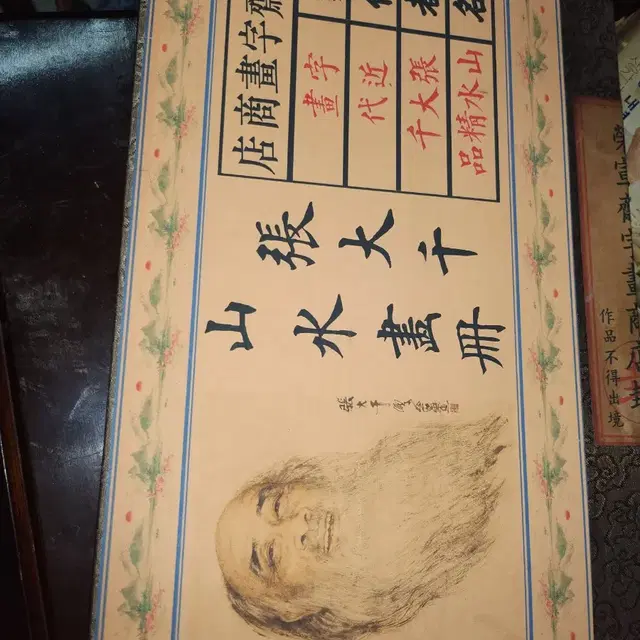 名 山水精品
者 張大千
近代
字畫
齋字畫商店
張大千
山水畫冊
張大千
字畫商店
作品不得出境